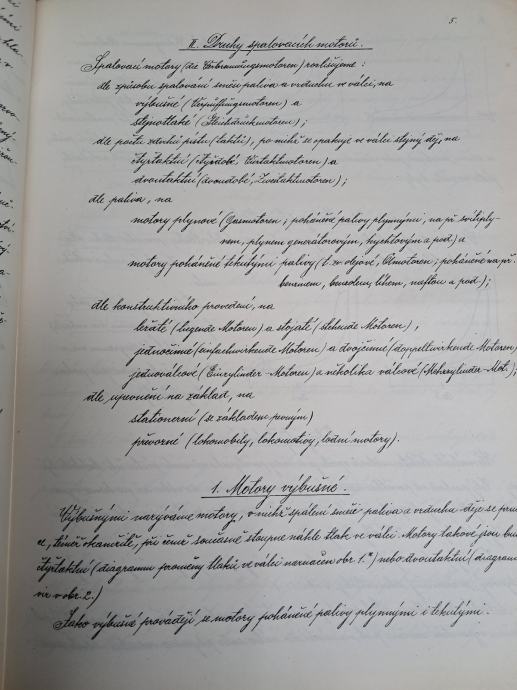 5.
II. Druhy spalovacích motorů.
Spalovací motory (die Verbrennungsmotoren) rozlišujeme:
dle způsobu spalování směsi paliva a vzduchu ve válci, na
výbušné (Verpuffungsmotoren) a
stejnotlaké (Gleichdruckmotoren);
dle počtu zdvihů pístu (taktů), po nichž se opakuje ve válci stejný děj, na
čtyřtaktní (čtyřdobé, Viertaktmotoren) a
dvoutaktní (dvoudobé, Zweitaktmotoren);
dle paliva, na
motory plynové (Gasmotoren; poháněné palivy plynnými, na př. svítiply-
nem, plynem generátorovým, kychtovým a pod.) a
motory poháněné tekutými palivy (t. zv. olejové, Ölmotoren; poháněné na př.
benzinem, benzolem, lihem, naftou a pod.);
dle konstruktivního provedení, na
ležaté (liegende Motoren) a stojaté (stehende Motoren),
jednočinné (einfachwirkende Motoren) a dvojčinné (doppeltwirkende Motoren)
jednoválcové (Einzylinder-Motoren) a několika válcové (Mehrzylinder-Mot.);
dle upevnění na základ, na
stationerní (se základem pevným)
převozné (lokomobily, lokomotivy, lodní motory).
1. Motory výbušné.
Výbušnými nazýváme motory, v nichž spálení směsi paliva a vzduchu děje se
téměř okamžitě, při čemž současně stoupne náhle tlak ve válci. Motory takové jsou
čtyřtaktní (diagramm proměny tlaků ve válci naznačen obr. 1.) nebo dvoutaktní (diagram
viz v obr. 2.)
Jako výbušné provádějí se motory poháněné palivy plynnými i tekutými.